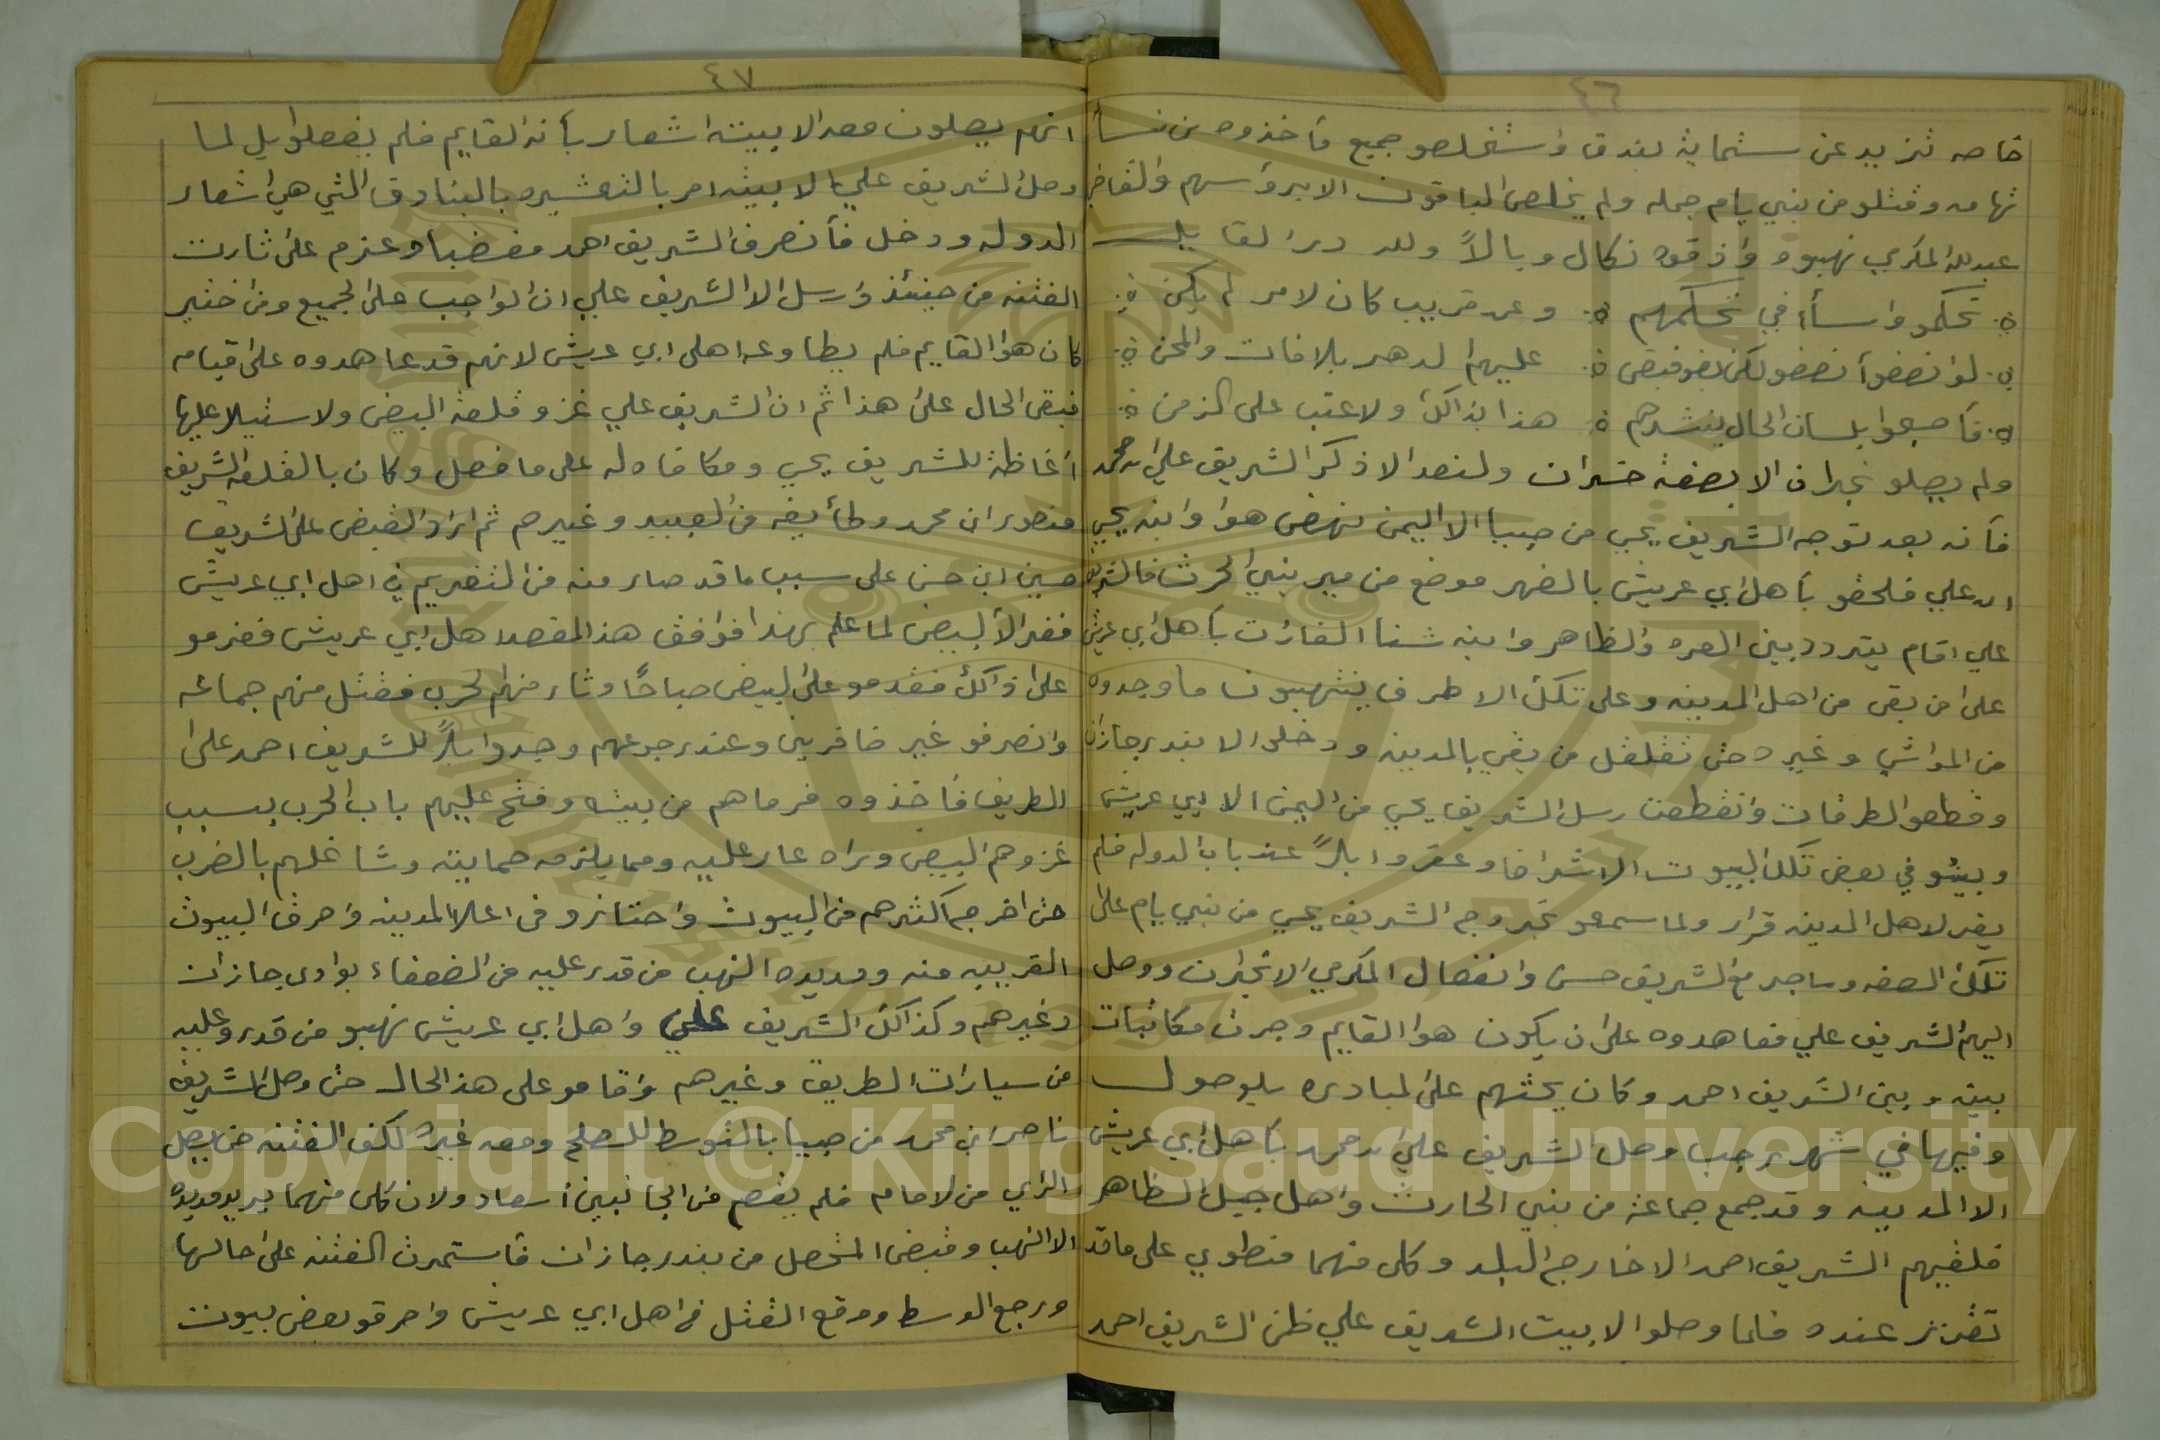 ٤٦
خاصه تزيد عن ستماية بندق واستخلصو جميع ماخذوه من نسأ
تهامه وقتلو من بني يام جمله ولم يخلص الباقون الا برؤسهم والقاضي
عبدلله المكرمي نهبوه واذقوه نكال وبالاً ولله در القايل
تحكمو واسأ في تحكمهم وعن قريب كان لامر لم يكن
لو انصفوآ نصفو لكن بغو فبغى عليهم الدهر بلافات والمحن
فأصبحوا بلسان الحال ينشدهم هذا بذاك ولا عتب على الزمن
ولم يصلو نجران الا بصفة خسران ولنعد الا ذكر الشريف علي ابن محمد
فأنه بعد توجه الشريف يحي من صبيا الا اليمن نهض هوا وابنه يحي
ابن علي فلحقو بأهل ابي عريش بالضهر موضع من مير بني الحرث فالشريف
علي اقام يتردد بين العره والظاهر وابنه شنا الغارت بأهل ابي عريش
على من بقى من اهل المدينه وعلى تلك الاطرف ينتهبون ما وجدوه
من المواشي وغيره حتى تقلقل من بقي بالمدينه ودخلو الا بندر جازان
وقطعو الطرقات وانقطعت رسل الشريف يحي من اليمن الا ابي عريش
وبيتو في بعض تلك البيوت الاشراف وعقروا ابلاً عند باب الدوله فلم
يقر لاهل المدينه قرار ولما سمعو بخروج الشريف يحي من بني يام على
تلك الصفه وماجر مع الشريف حسن وانفصال المكرمي الا نجران ووصل
اليهم الشريف علي فعاهدوه على ان يكون هوا القايم وجرت مكاتبات
بينه وبين الشريف احمد وكان يحثهم على المبادره بلوصول
وفيها في شهر رجب وصل الشريف علي ابن محمد بأهل ابي عريش
الا المدينه وقد جمع جماعة من بني الحارث واهل جبل الظاهر
فلقيهم الشريف احمد الا خارج البلد وكل منهما منطوي على ما قد
تقرر عنده فلما وصلوا الا بيت الشريف علي ظن الشريف احمد
٤٧
انهم يصلون معه الا بيته اشعار بأنه القايم فلم يفعلوا بل لما
وصل الشريف علي الا بيته امر بالتعشيره بالبنادق التي هي اشعار
الدوله ودخل فأنصرف الشريف احمد مغضبا وعزم على ثارت
الفتنه من حينئذ وارسل الا الشريف علي ان الواجب على الجميع ومن اختير
كان هوا القايم فلم يطاوعه اهلى ابي عريش لانهم قد عاهدوه على قيامه
فبقى الحال على هذا ثم ان الشريف علي غزو قلعة البيض ولاستيلا عليها
اغاظة للشريف يحي ومكافاه له على ما فعل وكان بالقلعه الشريف
منصور ابن محمد وطأيفه من العبيد وغيرهم ثم اراد القبض على الشريف
حسين ابن حسن على سبب ما قد صار منه من التغريم في اهل ابي عريش
ففر الأ البيض لما علم بهذا فوافق هذا لمقصد اهل ابي عريش فعزمو
على ذآلك فقدمو على البيض صباحًا وثار منهم الحرب فقتل منهم جماعه
وانصرفو غير ضافرين وعند رجوعهم وجدوا ابلاً للشريف احمد على
الطريق فأخذوه فرماهم من بيته وفتح عليهم باب الحرب بسبب
غزوهم البيض وراه عار عليه ومما يلزمه حمايته وشاغلهم بالضرب
حتى اخرج اكثرهم من البيوت واحتازو في اعلا المدينه واحرق البيوت
القريبه منه ومديده النهب من قدر عليه من الضعفاء بوادى جازان
وغيرهم وكذاكك الشريف علي واهل ابي عريش نهبو من قدرو عليه
من سيارات الطريق وغيرهم واقامو على هذا الحال حتى وصل الشريف
ناصر ابن محمد من صبيا بالتوسط للصلح ومعه غيره لكف الفتنه حتى يصل
الرأي من الامام فلم يقع من الجانبين اسعاد ولان كلى منهما يريد مديده
الا النهب وقبض المتحصل من بندر جازان فأستمرت الفتنه على حالها
ورجع الوسط ووقع القتل في اهل ابي عريش واحرقو بعض بيوت
Copyright © King Saud University